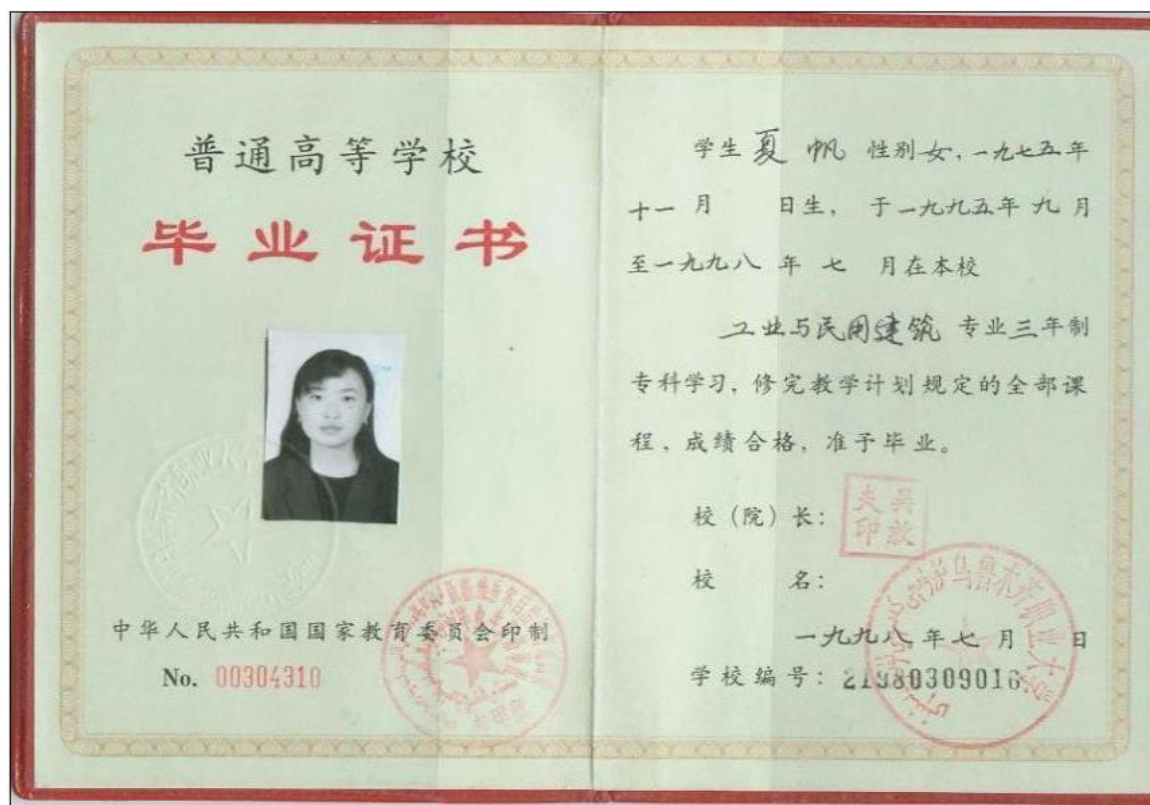 普通高等学校
毕业证书
中华人民共和国国家教育委员会印制
No. 00304310
学生 夏 帆 性别 女，一九七五年
十一 月 日生，于一九九五年 九 月
至一九九八 年 七 月在本校
工业与民用建筑 专业 三 年制
专科学习，修完教学计划规定的全部课
程，成绩合格，准予毕业。
校（院）长：
吴敦夫印
校 名：
乌鲁木齐职业大学
一九九八 年 七 月 日
学校编号：21980309016